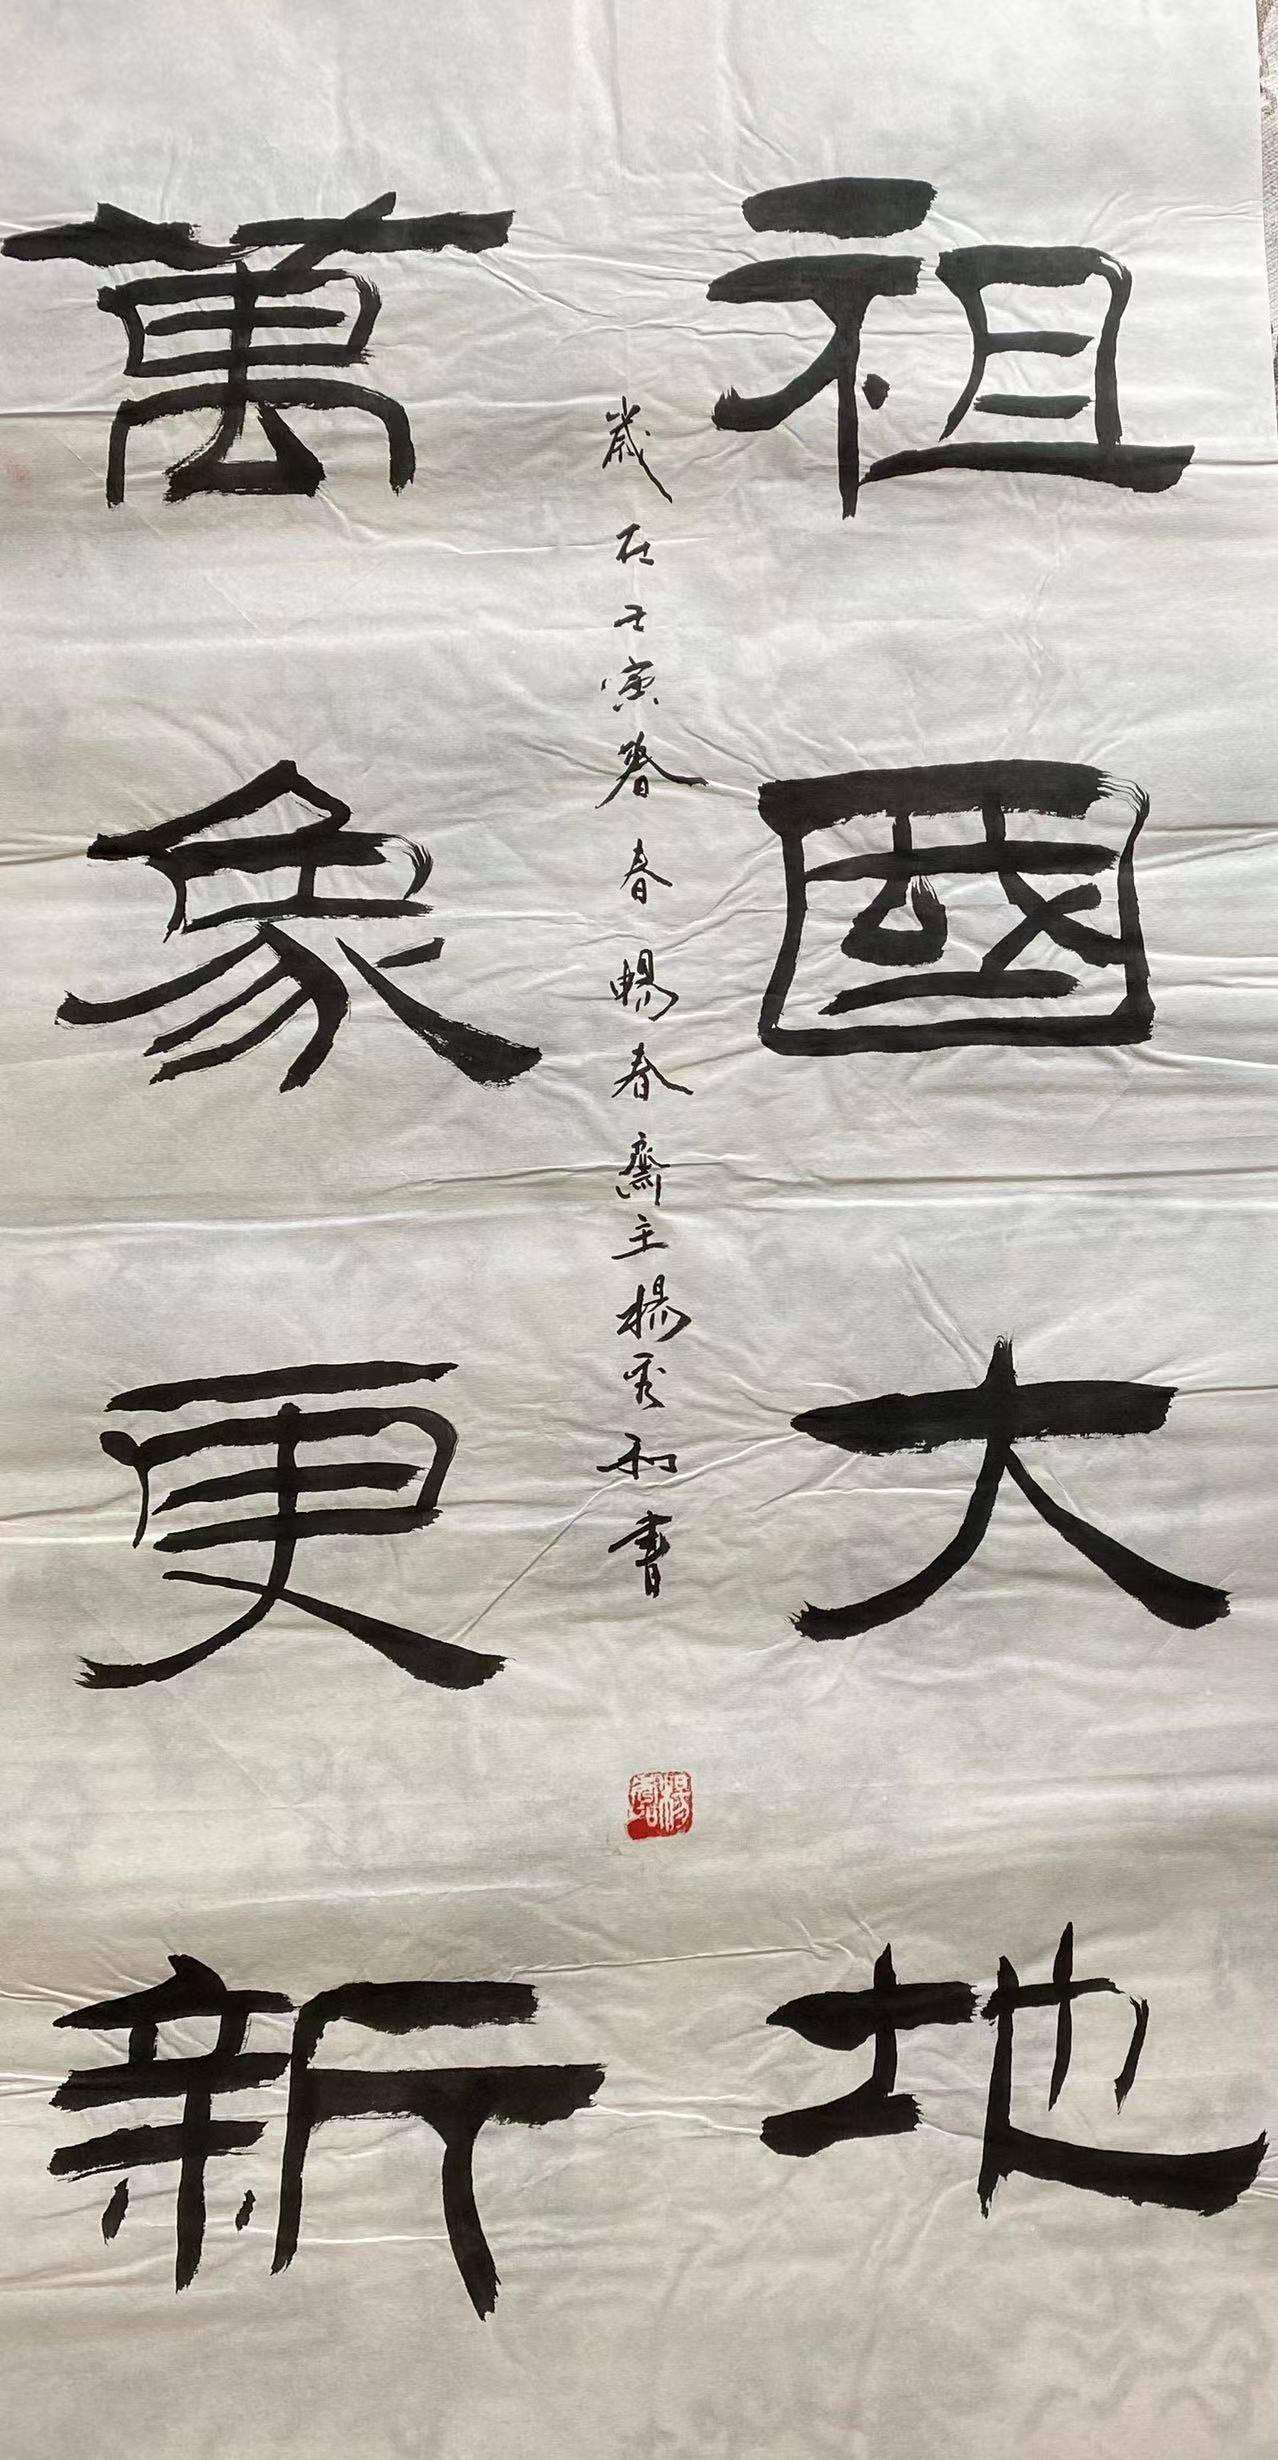 祖國大地
歲在壬寅暮春暢春齋主楊秀和書
萬象更新